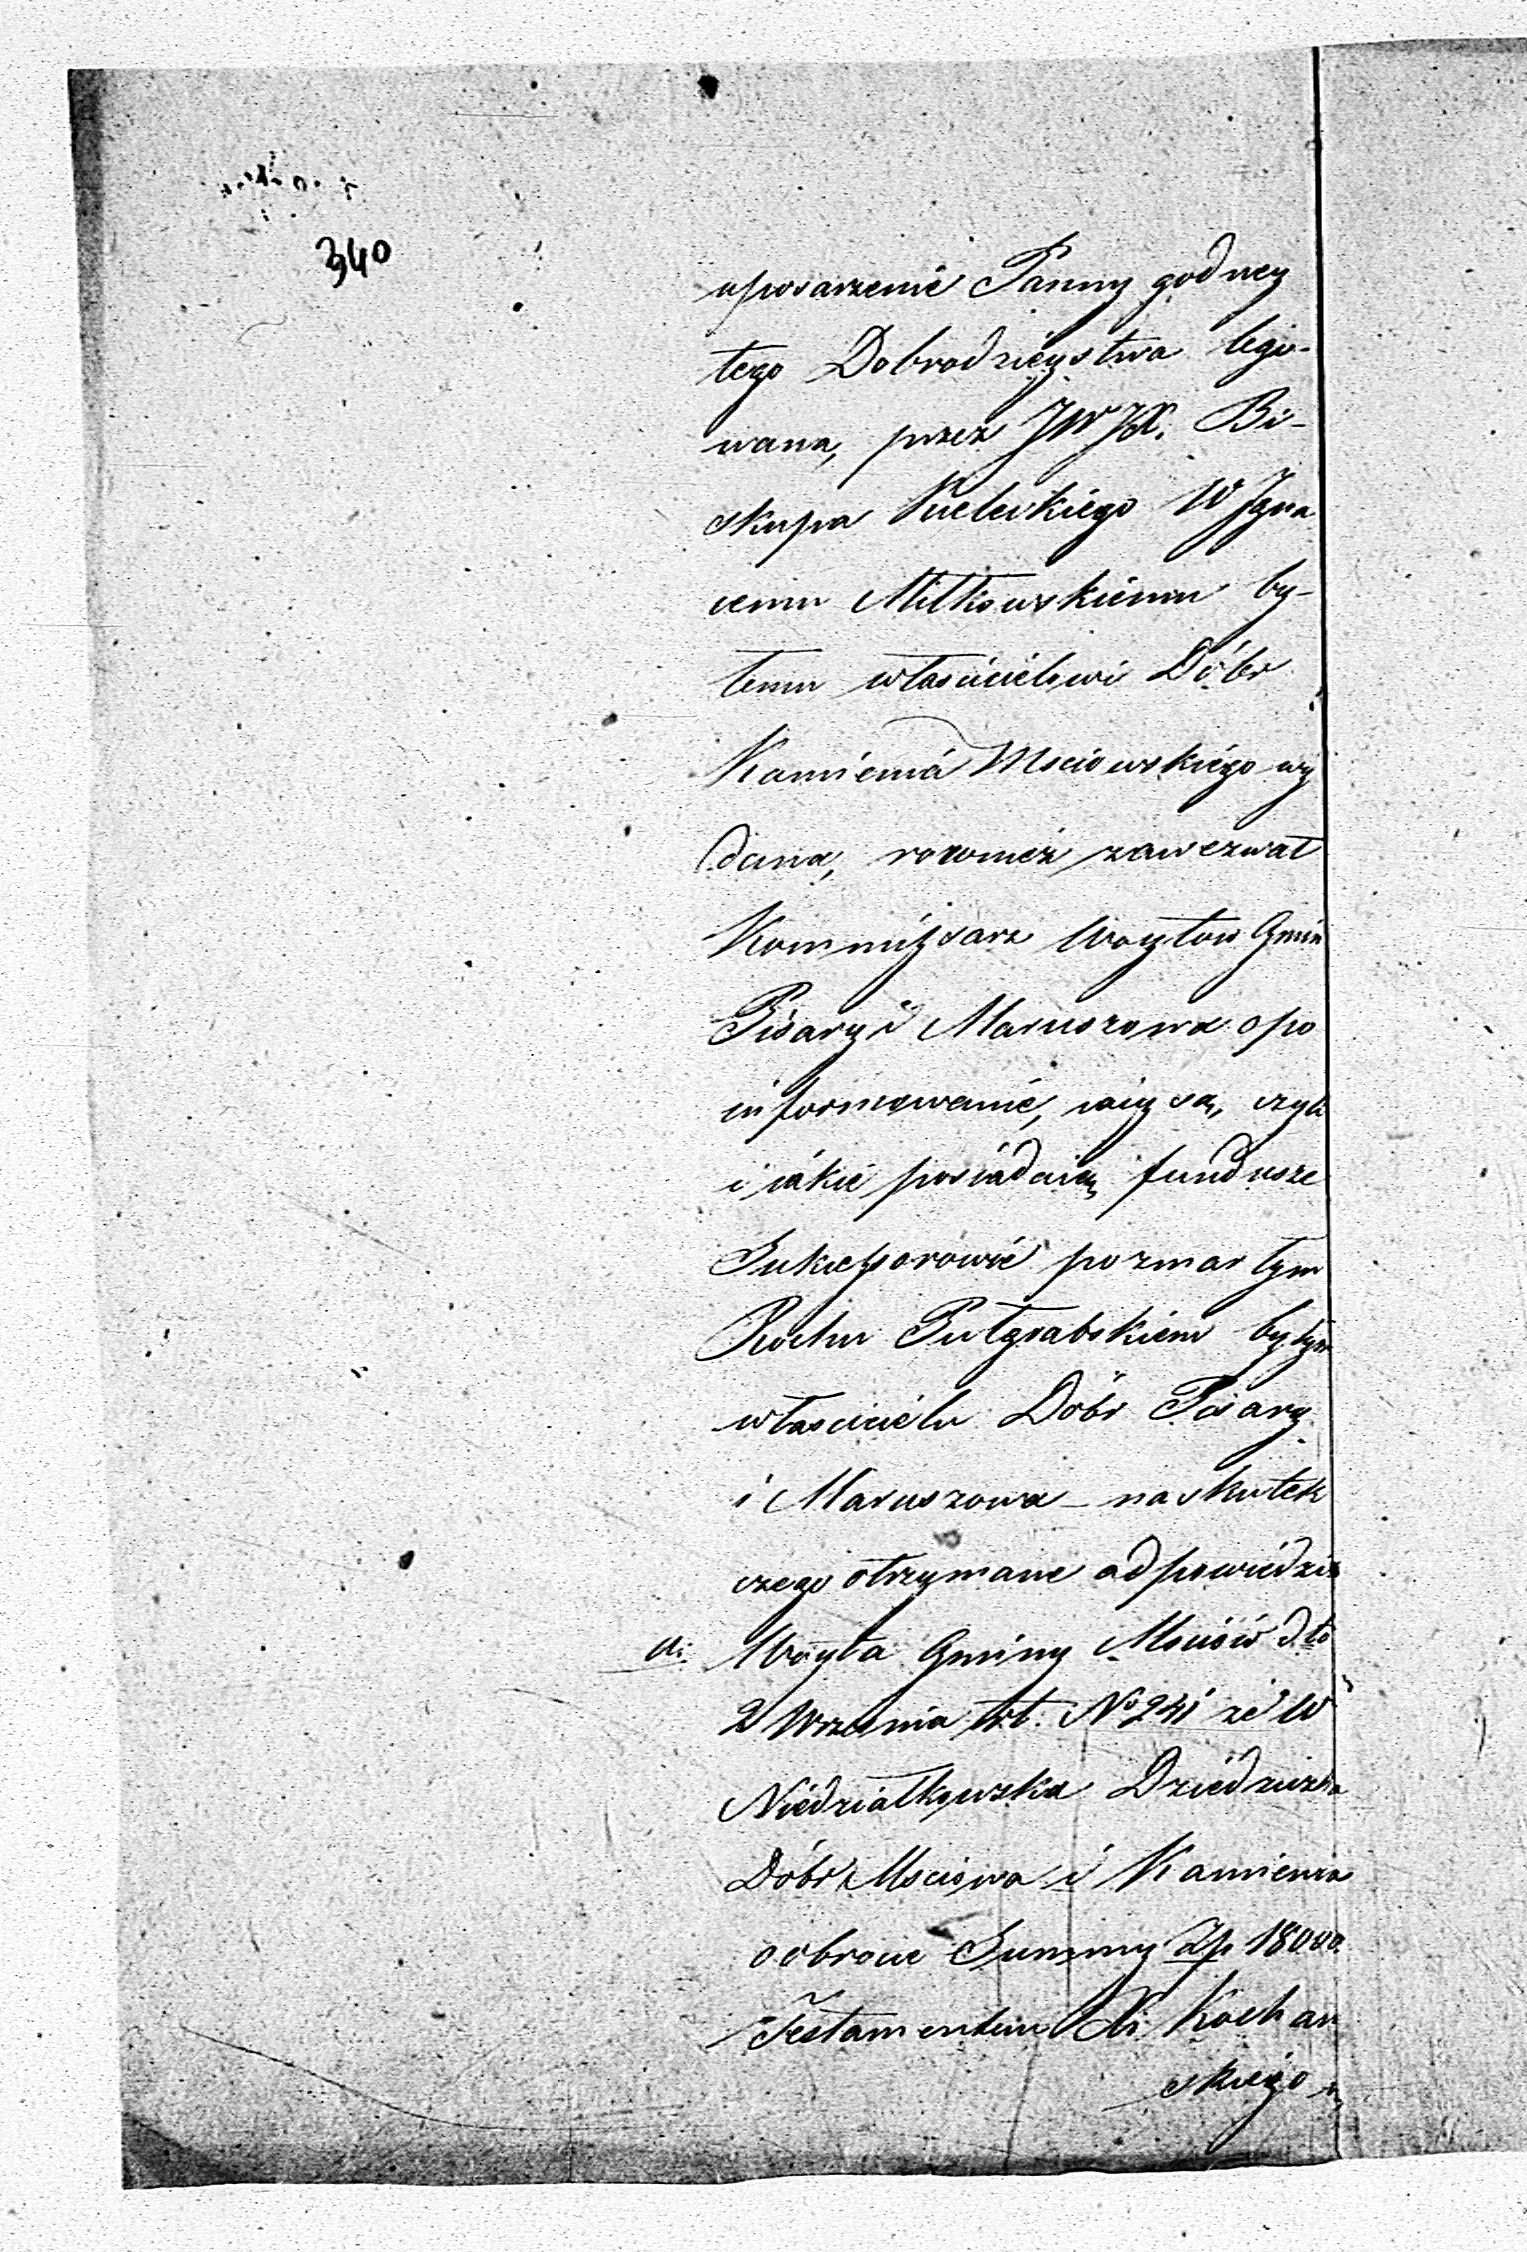 340
uposarzenie Panny godney
tego Dobrodzieystwa lego-
wana, przez JWJX. Bi-
skupa Kieleckiego W Igna
cemu Miłkowskiemu by-
łemu właścicielowi Dóbr
Kamienia Msciowskiego wy
dana, rowniéż zawezwał
Kommissarz Woytow Gmin
Pisary i Maruszowa o po
informowanie, iaiy są, czyli
i iákie posiádaią fundusze
Sukcessorowie po zmarłym
Rochu Pułgrabskiem byłym
właścicielu Dóbr Pisary
i Maruszowa – na skutek
czego otrzymane odpowiedzi
a: Woyta Gminy Msciów d.to
2 Września t.r. No 241 że W
Niedziałkowska Dziedziczka
Dóbr Msciowa i Kamienia
o obrocie Summy Zp 18000.
Testamentem X. Kochan
skiego